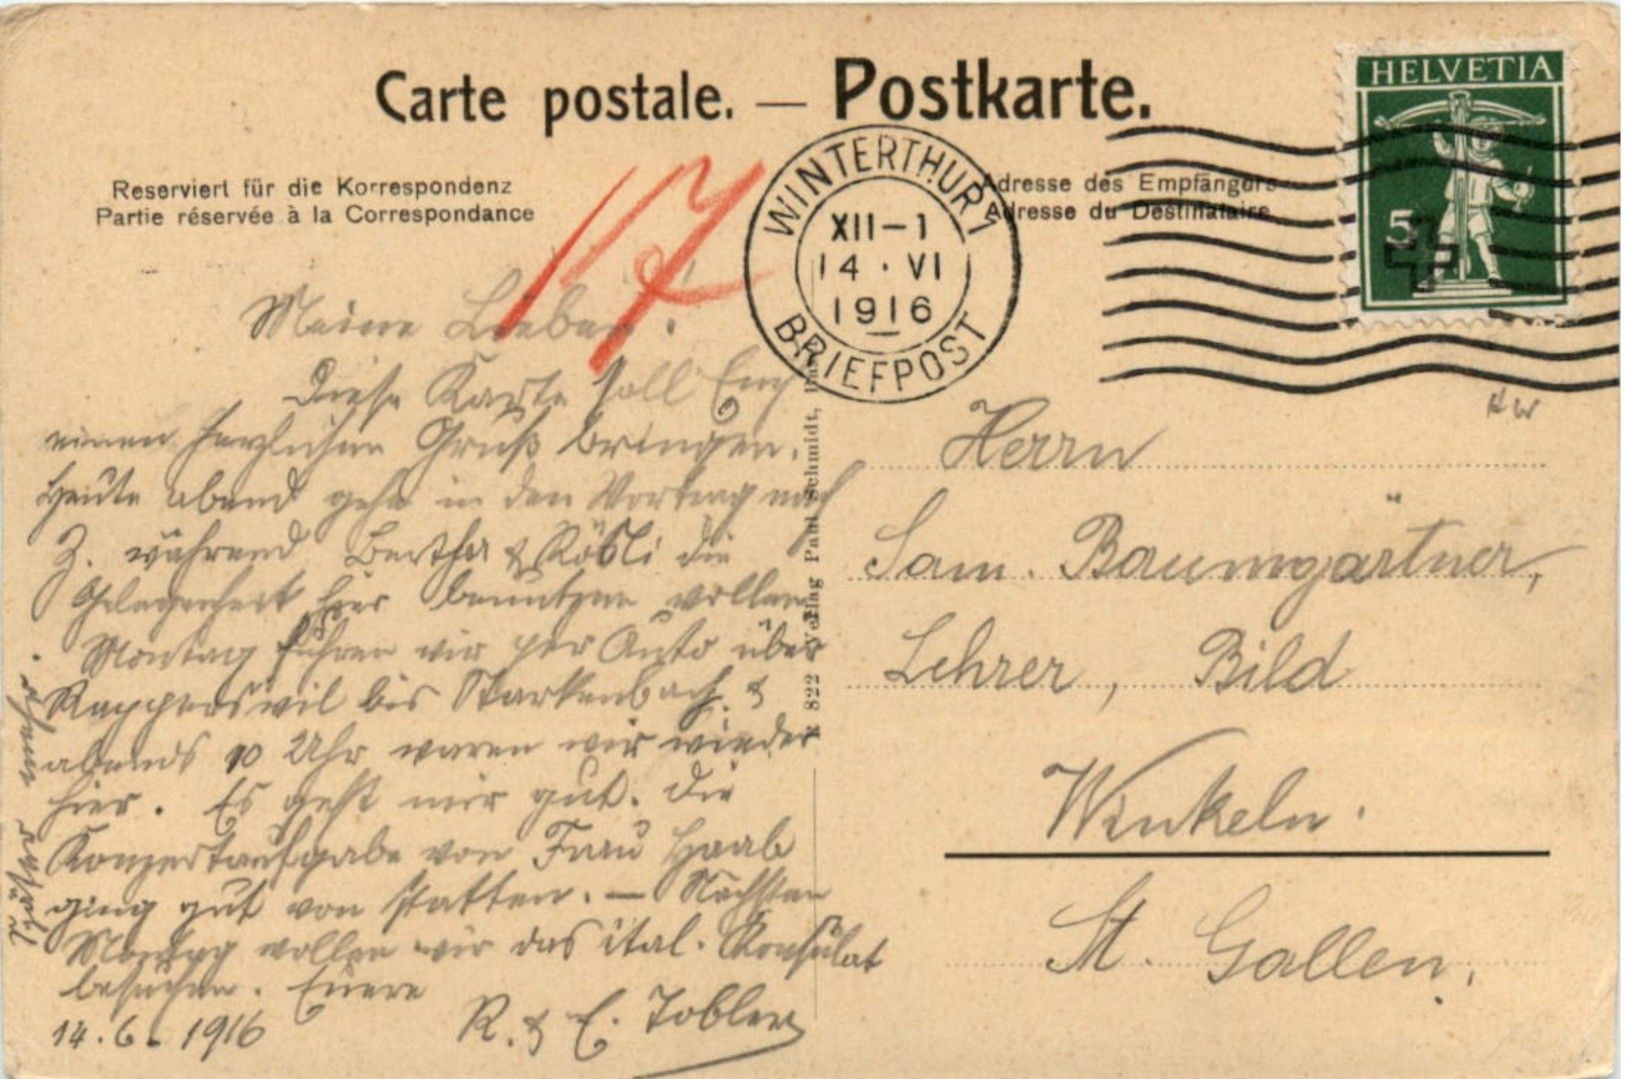 Carte postale. — Postkarte.
HELVETIA
5
WINTERTHUR 1
XII–1
14 · VI
1916
BRIEFPOST
Reserviert für die Korrespondenz
Partie réservée à la Correspondance
Adresse des Empfängers
Adresse du Destinataire
17
Meine Lieben!
Diese Karte soll Euch
einen herzlichen Gruß bringen.
Heute abend gehe in den Vortrag nach
Z. während Bertha & Rösli die
Gelegenheit hier benutzen wollen
Montag fuhren wir per Auto über
Rapperswil bis Starkenbach &
abends 10 Uhr waren wir wieder
hier. Es geht mir gut. Die
Konzertaufgabe von Frau Haab
ging gut von statten. — Nächsten
Montag wollen wir das ital. Konsulat
besuchen. Euere
14.6.1916 R. & E. Tobler
822 Verlag Paul Schmidt,
HW
Herrn
Sam. Baumgärtner,
Lehrer, Bild
Winkeln.
St. Gallen.